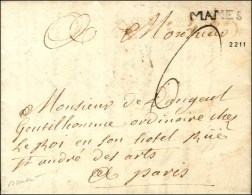 MAMES
Monsieur
2211
6
Monsieur de
Gentilhomme ordinaire chez
Le Roi en son hotel Rüe
St andré des arts
A paris